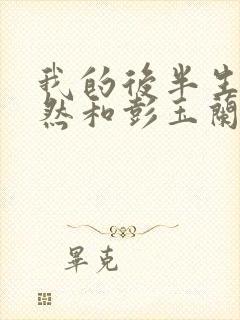 我的後半生
然和彭玉蘭
畢克